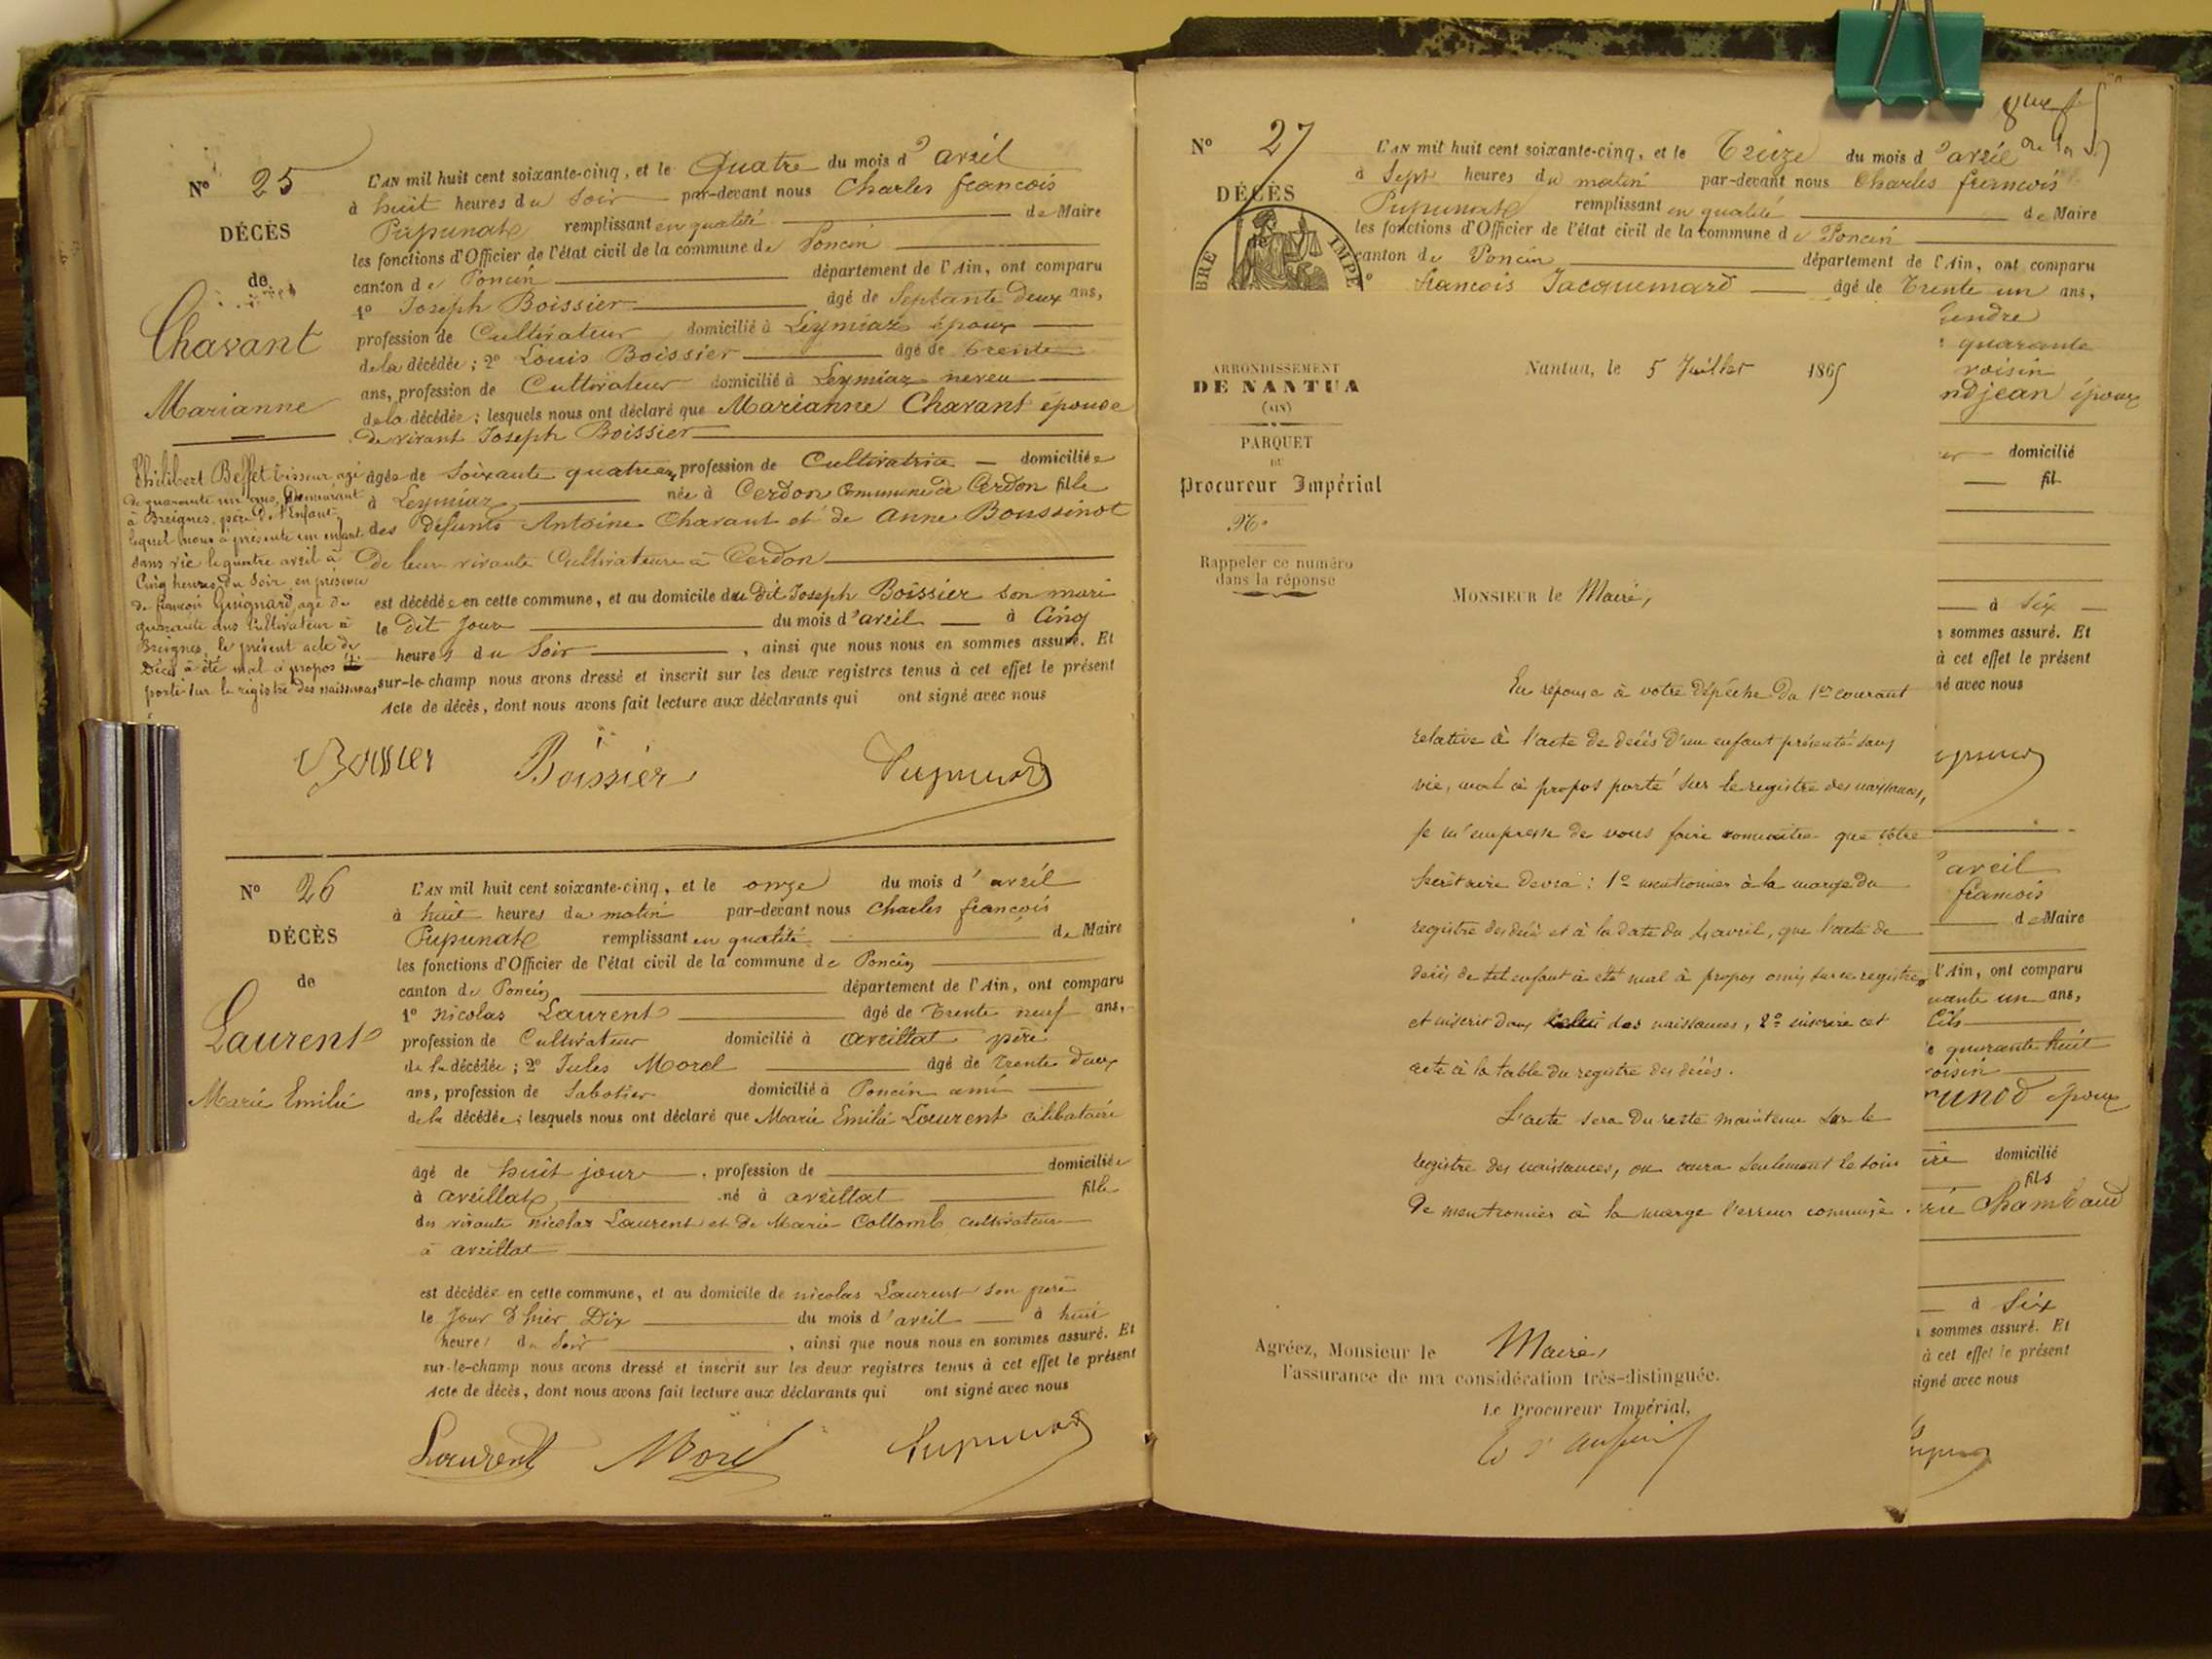 Nº 25
DÉCÈS
de
Chavant
Marianne
L'AN mil huit cent soixante-cinq, et le Quatre du mois d'avril
à huit heures du soir par-devant nous Charles françois
Pupunat remplissant en qualité de Maire
les fonctions d'Officier de l'état civil de la commune de Poncin
canton de Poncin département de l'Ain, ont comparu
1º Joseph Boissier âgé de Septante deux ans,
profession de Cultivateur domicilié à Leymiaz époux
de la décédée; 2º Louis Boissier âgé de trente
ans, profession de Cultivateur domicilié à Leymiaz neveu
de la décédée; lesquels nous ont déclaré que Marianne Chavant épouse
de vivant Joseph Boissier
âgée de soixante quatre ans, profession de Cultivatrice domiciliée
à Leymiaz née à Cerdon Commune de Cerdon fille
des défunts Antoine Chavant et de Anne Boussinot
de leur vivant Cultivateurs à Cerdon
est décédée en cette commune, et au domicile du dit Joseph Boissier son mari
le dit jour du mois d'avril à Cinq
heures du Soir, ainsi que nous nous en sommes assuré. Et
sur-le-champ nous avons dressé et inscrit sur les deux registres tenus à cet effet le présent
Acte de décès, dont nous avons fait lecture aux déclarants qui ont signé avec nous
Philibert Beffet tisseur, agé
de quarante un ans, Demeurant
à Breignes, père de l'Enfant
lequel nous a présenté un enfant
sans vie le quatre avril à
Cinq heures du Soir, en présence
de françois Guignard, agé de
quarante ans Cultivateur à
Breignes, le présent acte de
Décès à été mal à propos
porté sur le registre des naissances
Boissier Boissier Pupunat
Nº 26
DÉCÈS
de
Laurent
Marie Emilie
L'AN mil huit cent soixante-cinq, et le onze du mois d'avril
à huit heures du matin par-devant nous Charles françois
Pupunat remplissant en qualité de Maire
les fonctions d'Officier de l'état civil de la commune de Poncin
canton de Poncin département de l'Ain, ont comparu
1º Nicolas Laurent âgé de trente neuf ans,
profession de Cultivateur domicilié à avrillat père
de la décédée; 2º Jules Morel âgé de trente deux
ans, profession de Sabotier domicilié à Poncin ami
de la décédée; lesquels nous ont déclaré que Marie Emilie Laurent célibataire
âgé de huit jours, profession de domiciliée
à avrillat né à avrillat fille
des vivants nicolas Laurent et de Marie Collomb cultivateurs
à avrillat
est décédée en cette commune, et au domicile de nicolas Laurent son père
le Jour d'hier Dix du mois d'avril à huit
heures du Soir, ainsi que nous nous en sommes assuré. Et
sur-le-champ nous avons dressé et inscrit sur les deux registres tenus à cet effet le présent
Acte de décès, dont nous avons fait lecture aux déclarants qui ont signé avec nous
Laurent Morel Pupunat
Nº 27
DÉCÈS
L'AN mil huit cent soixante-cinq, et le Treize du mois d'avril
à Sept heures du matin par-devant nous Charles françois
Pupunat remplissant en qualité de Maire
les fonctions d'Officier de l'état civil de la commune de Poncin
canton de Poncin département de l'Ain, ont comparu
françois Jacquemard âgé de Trente un ans,
BRE IMPE
ARRONDISSEMENT
DE NANTUA
(AIN)
PARQUET
DU
Procureur Impérial
Nº
Rappeler ce numéro
dans la réponse
Nantua, le 5 Juillet 1865
MONSIEUR le Maire,
En réponse à votre dépêche du 1er courant
relative à l'acte de décès d'un enfant présenté sans
vie, mal à propos porté sur le registre des naissances,
je m'empresse de vous faire connaître que votre
Secrétaire devra: 1º mentionner à la marge du
registre des décès et à la date du 4 avril, que l'acte de
décès de tel enfant à été mal à propos omis sur ce registre
et inscrit dans celui des naissances, 2º inscrire cet
acte à la table du registre des décès.
L'acte sera du reste maintenu sur le
registre des naissances, on aura seulement le soin
de mentionner à la marge l'erreur commise.
Agréez, Monsieur le Maire,
l'assurance de ma considération très-distinguée.
Le Procureur Impérial,
gendre
quarante
voisin
ndjean époux
domicilié
fil
à Six
sommes assuré. Et
à cet effet le présent
né avec nous
avril
francois
de Maire
l'Ain, ont comparu
ante un ans,
fils
quarante huit
voisin
unod époux
domicilié
fils
rie Chambaud
à Six
sommes assuré. Et
à cet effet le présent
signé avec nous